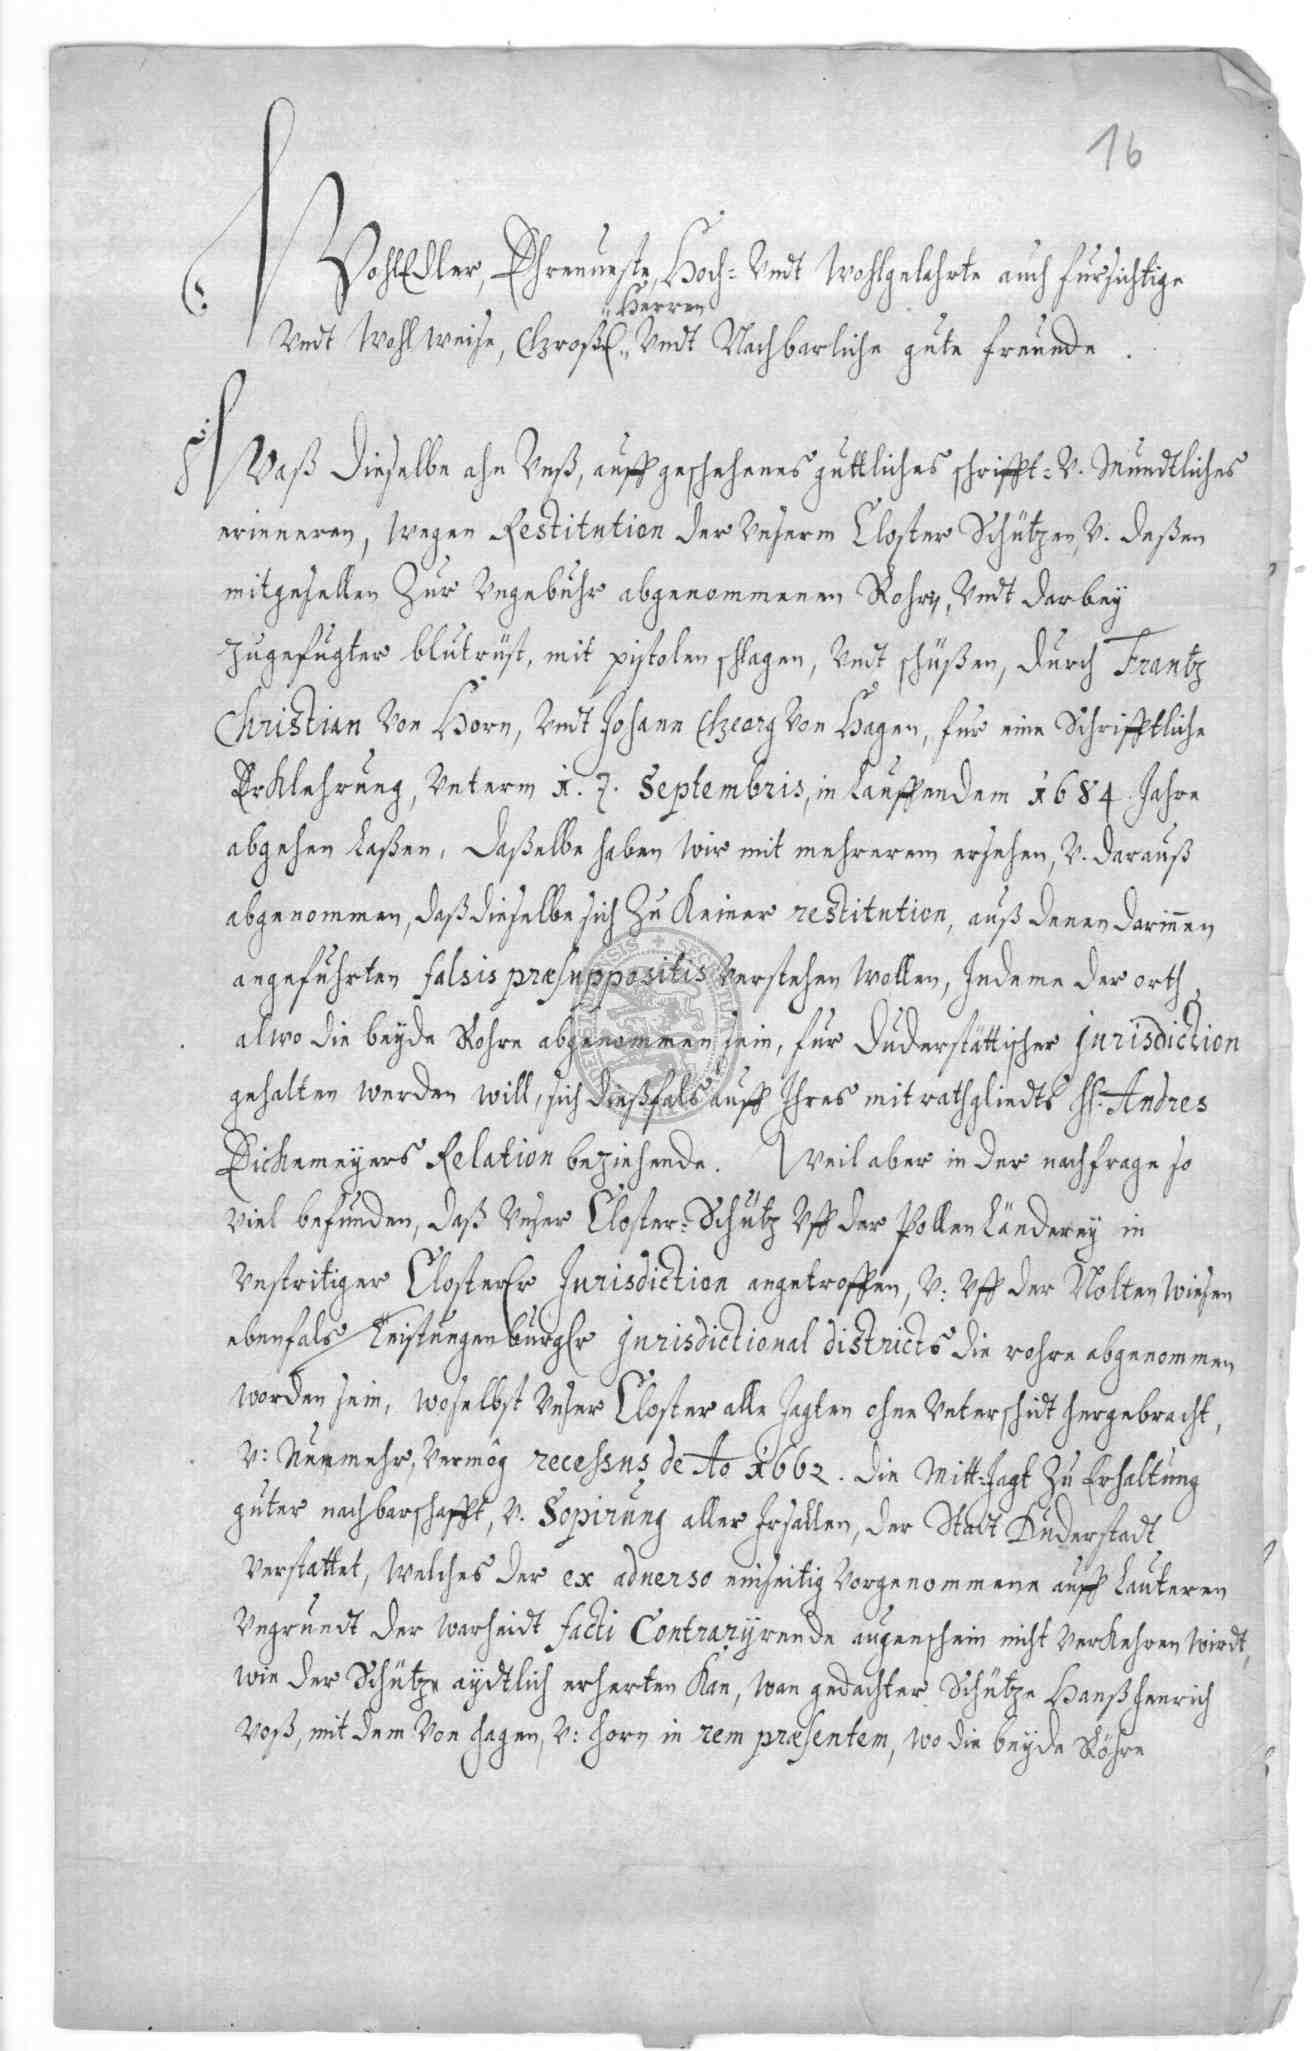 16
WohlEdler, Ehrenueste, Hoch- Vndt Wohlgelahrte auch fursichtige
Herren
Vndt Wohlweise, Großg. Vndt Nachbarliche gute freunde.
Waß dieselbe ahn Vnß, auff geschehenes guttliches schrifft- V. Mundtliches
erinneren, wegen Restitution der Vnserm Closter Schützen, V. deßen
mitgesellen Zur Vngebuhr abgenommenen Rohr, Vndt darbey
zugefugter blutrüst, mit pistolen schlagen, Vndt schüßen, durch Frantz
Christian Von Horn, Vndt Johann Georg Von Hagen, fur eine Schrifftliche
Erklehrung, Vnterm 17. Septembris, in Lauffendem 1684. Jahre
abgehen Laßen, daßelbe haben wir mit mehrerem ersehen, V. darauß
abgenommen, daß dieselbe sich Zu Keiner restitution, auß denen darinnen
angefuhrten falsis præsuppositis Verstehen wollen, Indeme der orth
alwo die beyde Rohre abgenommen sein, fur Duderstättischer jurisdiction
gehalten werden will, sich dießfals auff Ihres mitrathgliedts H. Andres
Dickemeyers Relation beziehende. Weil aber in der nachfrage so
Viel befunden, daß Vnser Closter-Schütz Vff der Pollen Länderey in
Vnstritiger Closter Jurisdiction angetroffen, V: Vff der Nolten wiesen
ebenfals Teistungenburg jurisdictional districts die rohre abgenommen
worden sein, woselbst Vnser Closter alle Jagten ohne Vnterschidt hergebracht,
V: Nunmehr, Vermög recessus de Ao 1662. die Mitt-Jagt Zu Erhaltung
guter nachbarschafft, V. Sopirung aller Irsallen, der Stadt Duderstadt
Verstattet, welches der ex aduerso einseitig Vorgenommene auff Lauteren
Vngrundt der warheidt facti Contrarÿrende augenschein nicht Verkehren wirdt,
wie der Schütze aydtlich erherten Kan, wan gedachter Schütze Hanß Henrich
Voß, mit dem Von Hagen, V: Horn in rem præsentem, wo die beyde Röhre